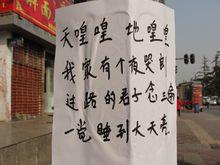 天喤喤 地喤喤
我家有个夜哭郎
过路的君子念三遍
一觉睡到大天亮